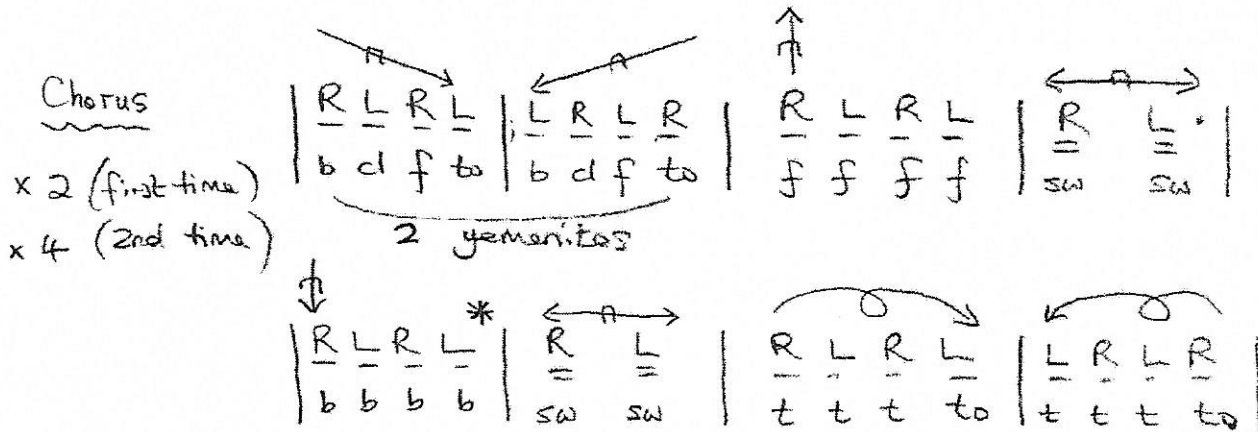 Chorus
x 2 (first time)
x 4 (2nd time)
| R L F L | L R L R | R L R L | R L . |
b d f to b d f to f f f f sw sw
2 yemenites
| R L R L * | R L | R L R L | L R L R |
b b b b sw sw t t t to t t t to